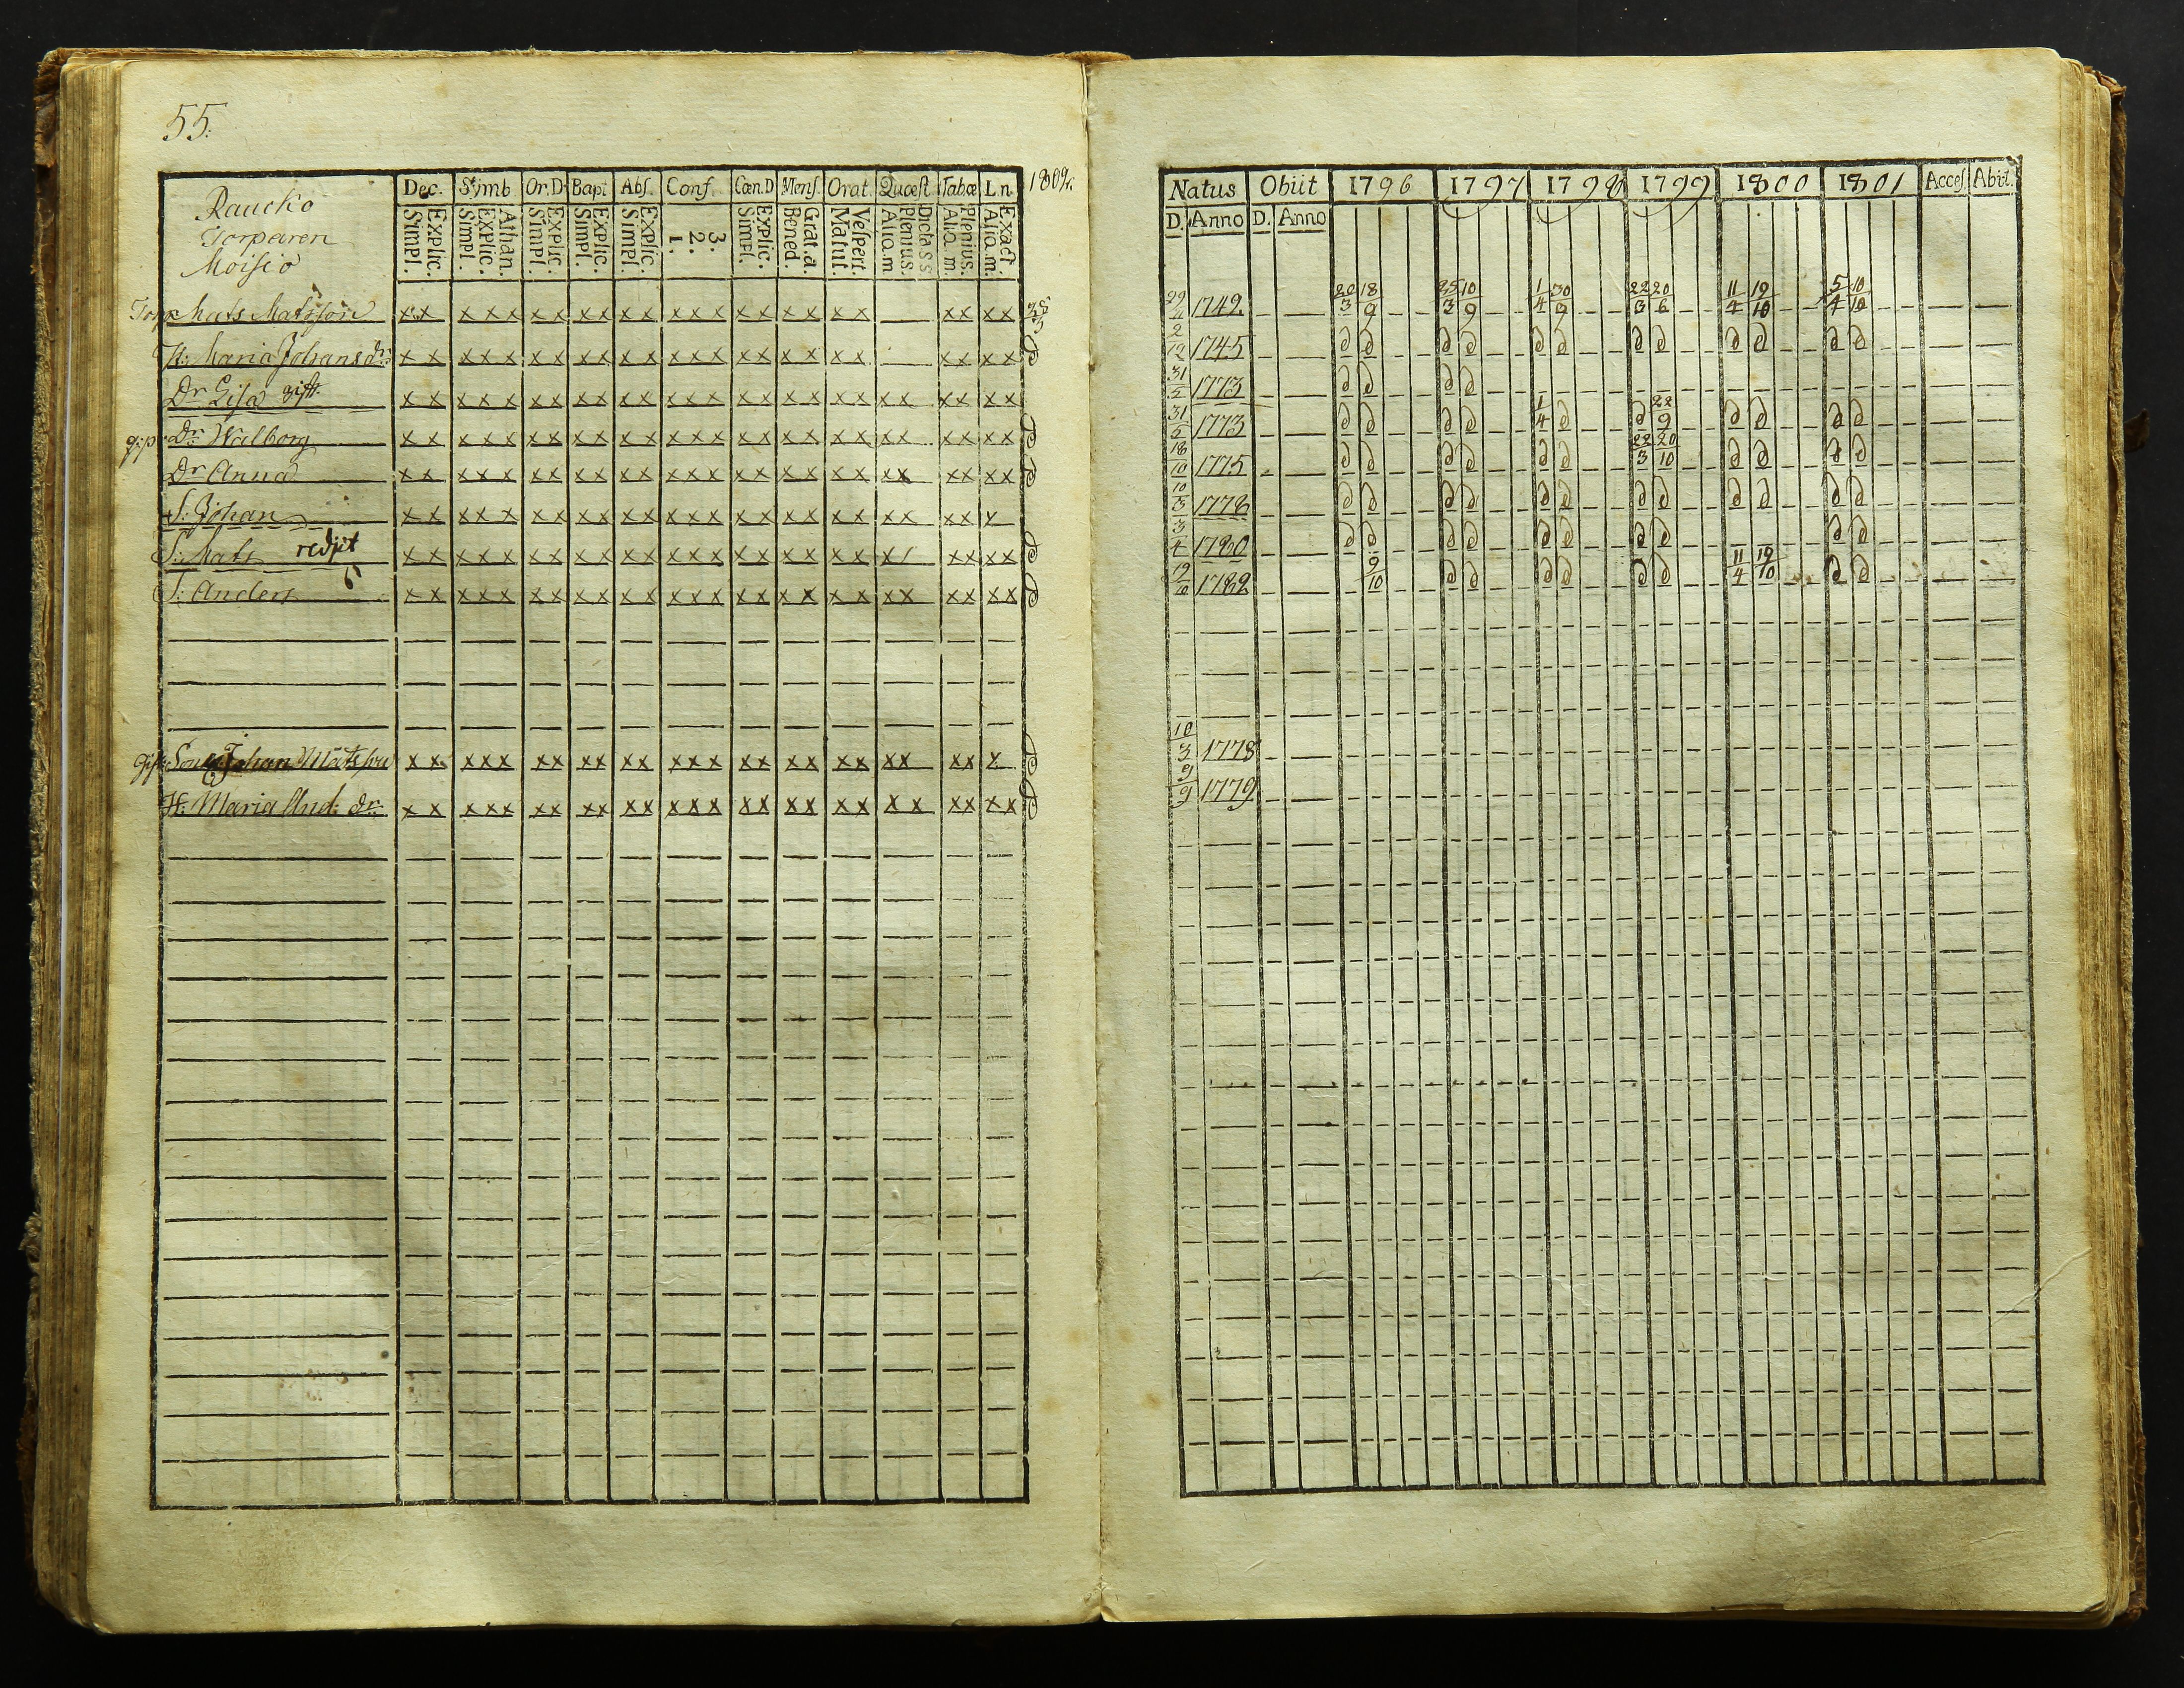 55.
Raucko
Torparen
Moisio
Dec. Simb Or.D. Bapt Abſ. Conf. Cœn.D Menſ. Orat. Quæſt Tabæ L.n 1802.
Simpl. Explic. Simpl. Explic. Athan. Simpl. Explic. Simpl. Explic. Simpl. Explic. 1. 2. 3. Simpl. Explic. Bened. Grat.a. Matut. Veſpert. Aliq.m Plenius. Dicta S S Aliq.m. Plenius. Aliq.m. Exact.
Torp Mats Matsſon x x x x x x x x x x x x x x x x x x x x x x x x
H: Maria Johansdr: x x x x x x x x x x x x x x x x x x x x x x x x
Dr Lisa gift x x x x x x x x x x x x x x x x x x x x x x x x x x
gift Dr Walborg x x x x x x x x x x x x x x x x x x x x x x x x x x
Dr Anna x x x x x x x x x x x x x x x x x x x x x x x x x x
S: Johan x x x x x x x x x x x x x x x x x x x x x x x x x
S: Mats redjit x x x x x x x x x x x x x x x x x x x x x / x x x x
S: Anders x x x x x x x x x x x x x x x x x x x x x x x x x x
gift Son Johan Matsſon x x x x x x x x x x x x x x x x x x x x x x x x x
H: Maria And: dr: x x x x x x x x x x x x x x x x x x x x x x x x x x
Natus Obiit 1796 1797 1798 1799 1800 1801 Acceſ. Abiit.
D. Anno D. Anno
1749 20/3 18/9 25/3 10/9 1/4 30/9 22/3 20/6 11/4 19/10 5/4 10/10
2/12 1745 d d d d d d d d d d d d
31/5 1773 d d d d
31/5 1773 d d d d 1/4 d d 22/9 d d d d
18/10 1775 d d d d d d 22/3 20/10 d d d d
10/3 1778 d d d d d d d d d d d d
3/4 1780 d d d d d d d d d d
19/10 1782 9/10 d d d d d d 11/4 19/10 d d
10/3 1778
9/9 1779